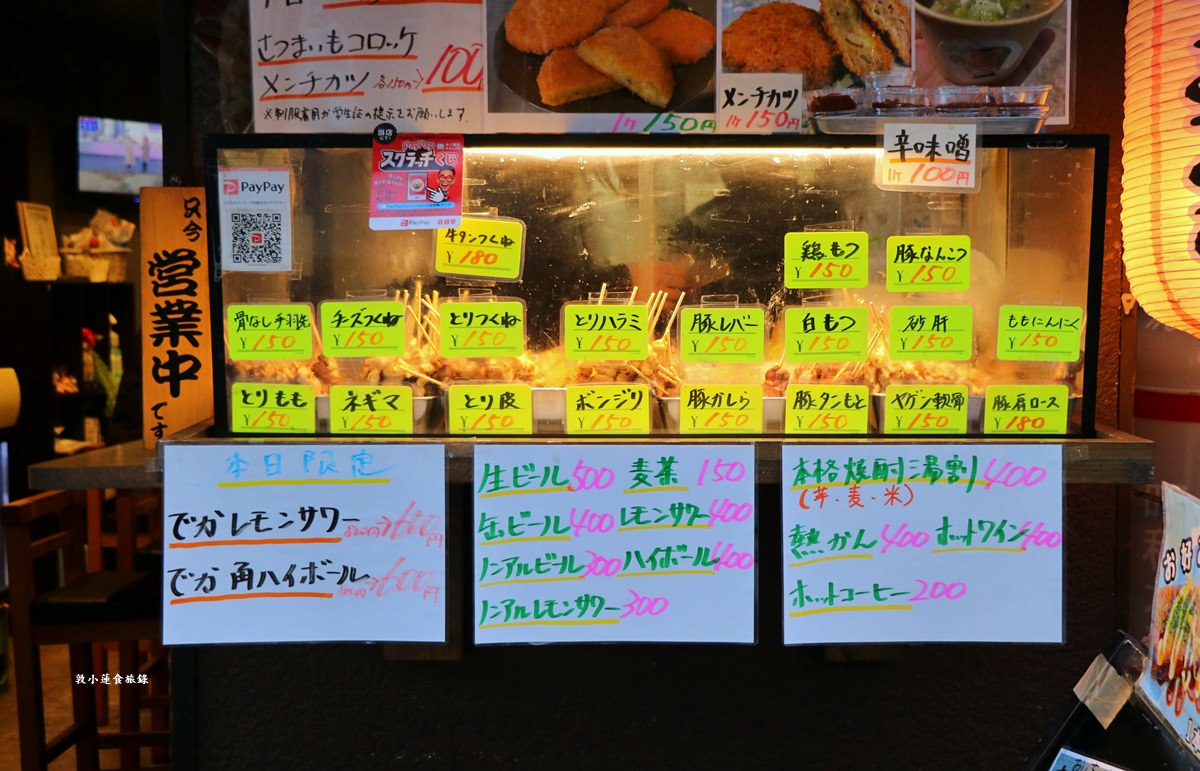 さつまいもコロッケ
メンチカツ 各150円→100
※制服着用か学生証の提示をお願いします。
1ケ150円
メンチカツ
1ケ150円
辛味噌
1ケ100円
PayPay
当店
PayPay
スクラッチくじ
PayPay
只今
営業中
です
牛タンつくね
¥180
鶏もつ
¥150
豚なんこつ
¥150
骨なし手羽先
¥150
チーズつくね
¥150
とりつくね
¥150
とりハラミ
¥150
豚レバー
¥150
白もつ
¥150
砂肝
¥150
ももにんにく
¥150
とりもも
¥150
ネギマ
¥150
とり皮
¥150
ボンジリ
¥150
豚かしら
¥150
豚タンもと
¥150
ヤゲン軟骨
¥150
豚肩ロース
¥180
本日限定
でかレモンサワー 800円→600円
でか角ハイボール 800円→600円
生ビール500 麦茶 150
缶ビール400 レモンサワー400
ノンアルビール300 ハイボール400
ノンアルレモンサワー300
本格焼酎湯割400
(芋・麦・米)
熱かん400 ホットワイン400
ホットコーヒー200
お好
敦小蓮食旅錄